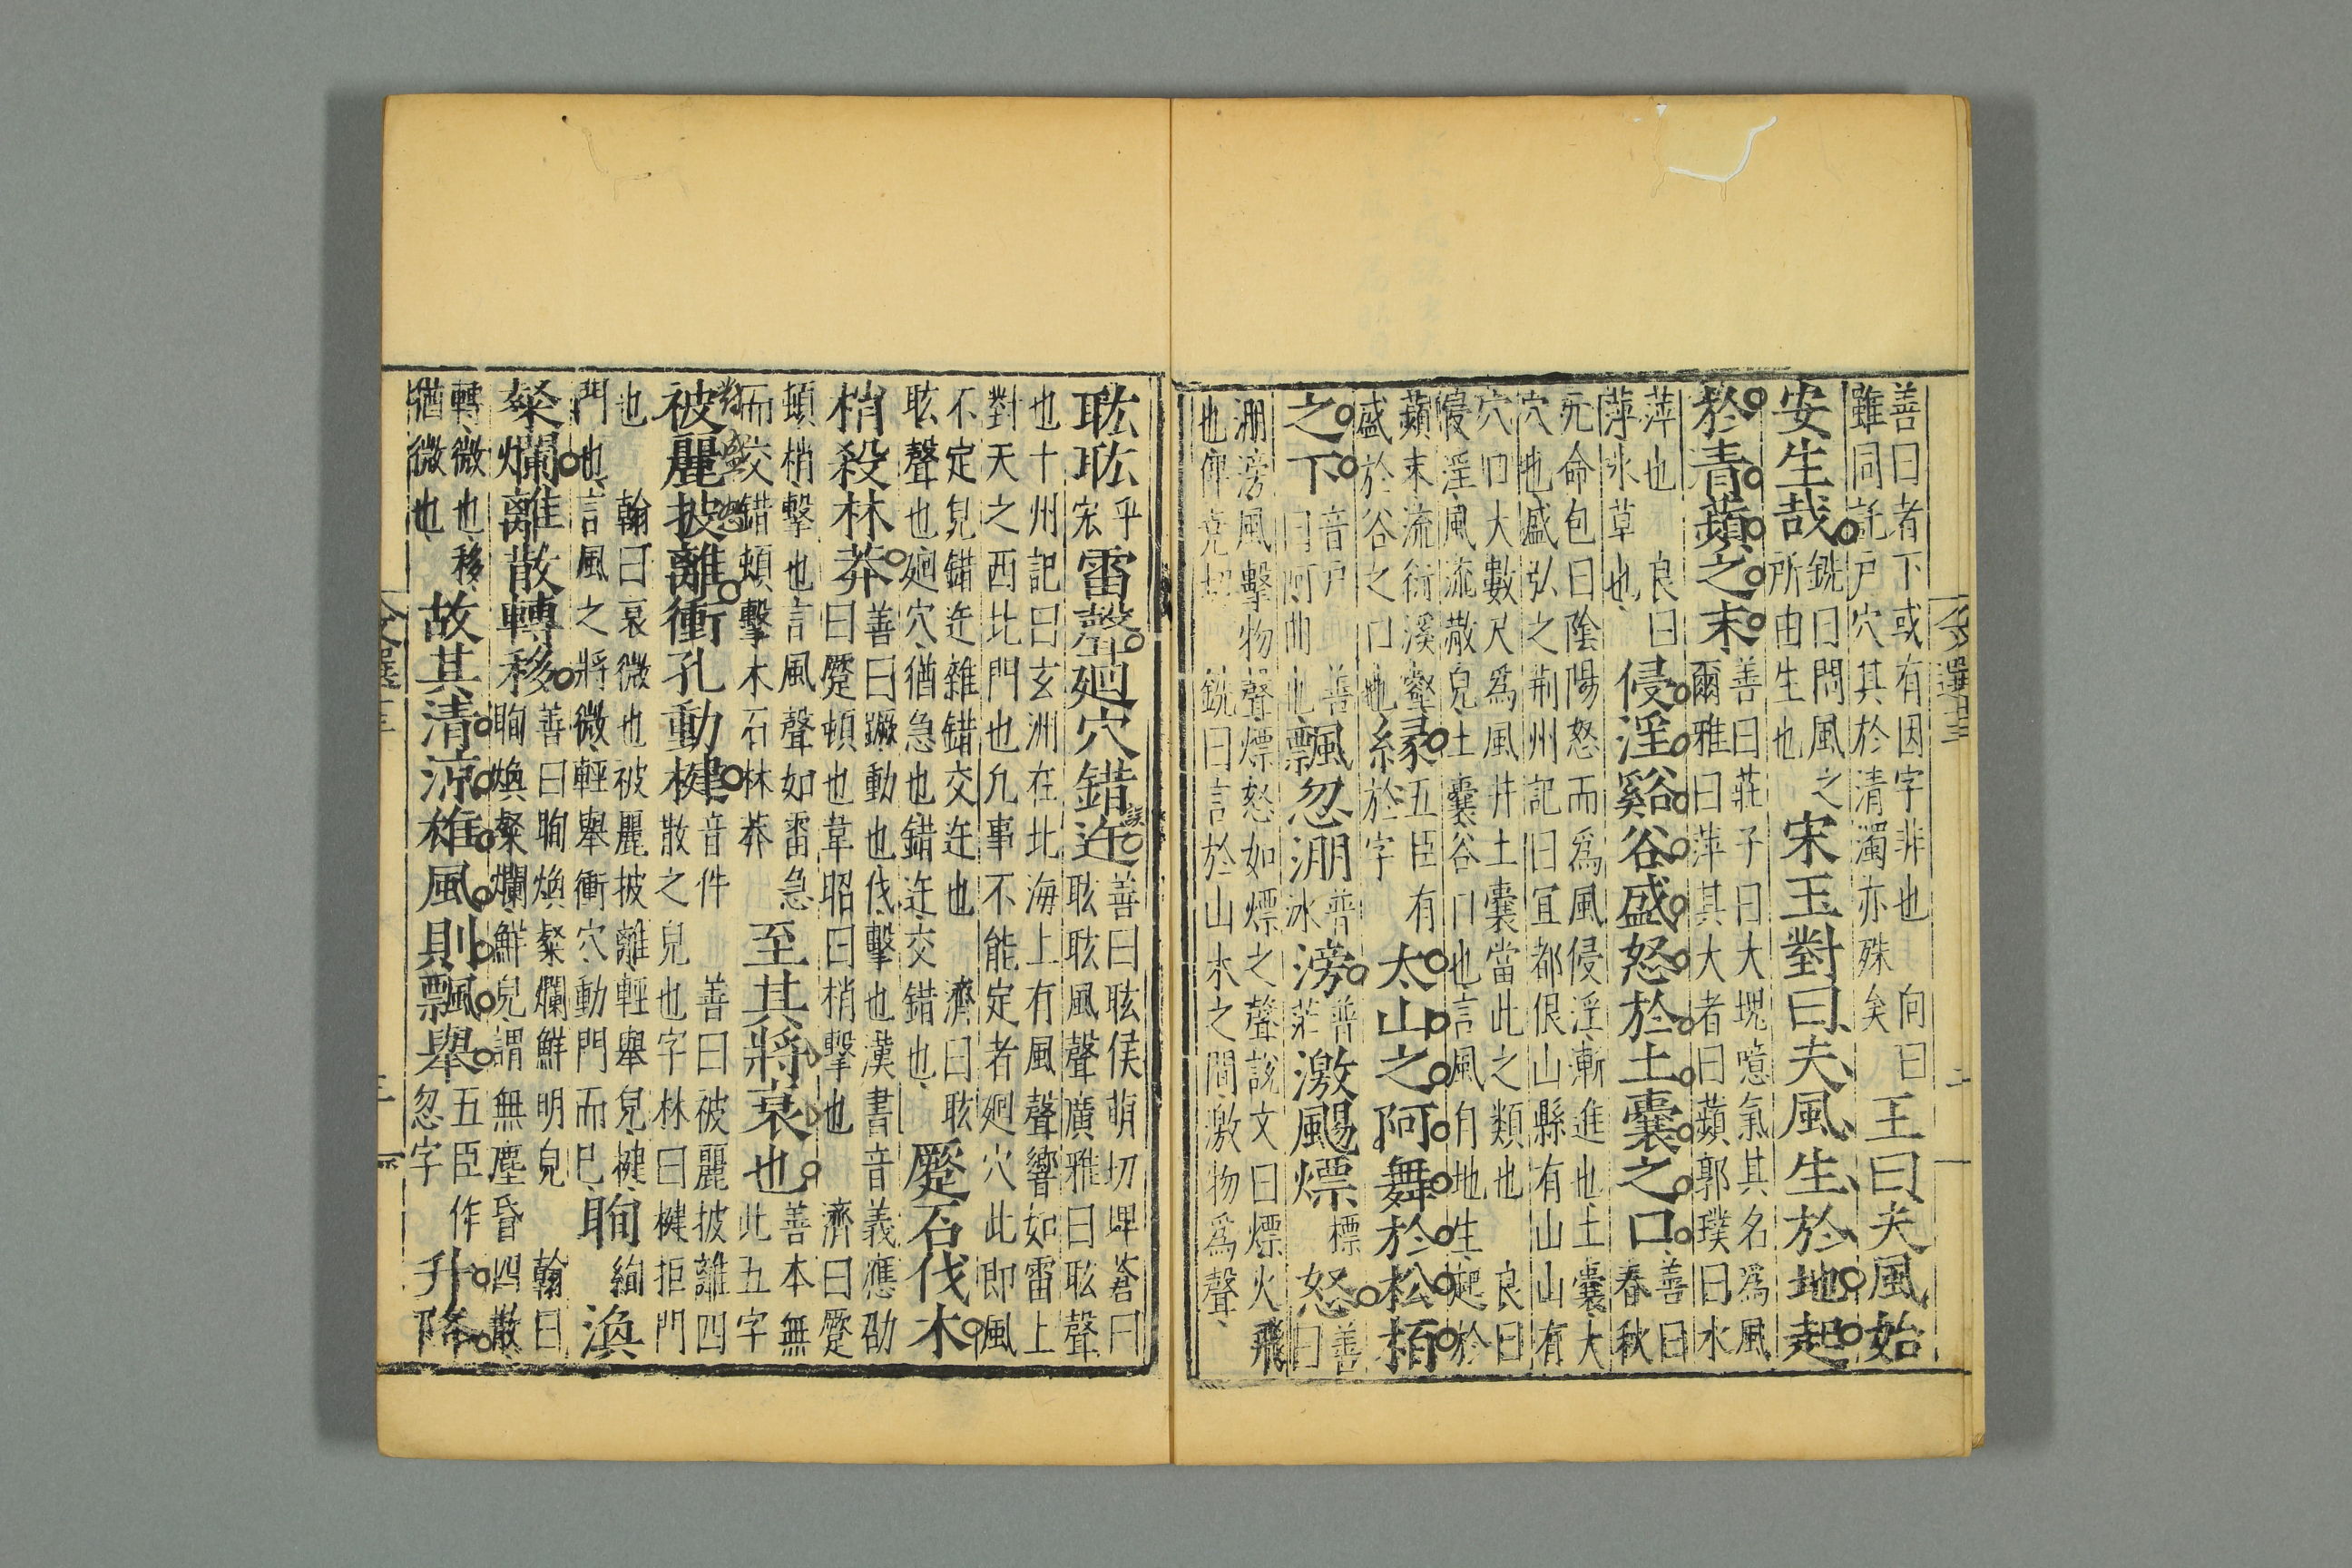 文選十三
善曰者下或有因字非也 向曰
雖同託戶穴其於清濁亦殊矣
王曰夫風始
安生哉
銑曰問風之
所由生也
宋玉對曰夫風生於地起
於青蘋之末
善曰莊子曰大塊噫氣其名爲風
爾雅曰萍其大者曰蘋郭璞曰水
萍也 良曰
萍水草也
侵淫谿谷盛怒於土囊之口
善曰
春秋
元命包曰陰陽怒而爲風侵淫漸進也土囊大
穴也盛弘之荆州記曰宜都佷山縣有山山有
穴口大數尺爲風井土囊當此之類也 良曰
侵淫風流散皃土囊谷口也言風自地生起於
蘋末流衍溪壑
盛於谷之口也
緣
五臣有
於字
太山之阿舞於松栢
之下
音戶 善
曰阿曲也
飄忽淜
普
冰
滂
普
莊
激颺熛
標
怒
善
曰
淜滂風擊物聲熛怒如熛之聲說文曰熛火飛
也俾堯切 銑曰言於山木之間激物爲聲
耾耾
乎
宏
雷聲廻穴錯迕
誤
善曰耾侯萌切埤蒼曰
耾耾風聲廣雅曰耾聲
也十州記曰玄洲在北海上有風聲響如雷上
對天之西北門也凢事不能定者廻穴此即風
不定皃錯迕雜錯交迕也 濟曰耾
耾聲也廻穴猶急也錯迕交錯也
蹷石伐木
梢殺林莽
善曰蹶動也伐擊也漢書音義應劭
曰蹷頓也韋昭曰梢擊也 濟曰蹷
頓梢擊也言風聲如雷急
而交錯頓擊木石林莽
至其將衰也
善本無
此五字
被麗披離衝孔動楗
音件 善曰被麗披離四
散之皃也字林曰楗拒門
也 翰曰衰微也被麗披離輕舉皃楗
門也言風之將微輕舉衝穴動門而巳
眴
絢
渙
粲爛離散轉移
善曰眴煥粲爛鮮明皃 翰曰
眴煥粲爛鮮皃謂無塵昏四散
轉微也移
猶微也
故其清涼雄風則飄舉
五臣作
忽字
升降